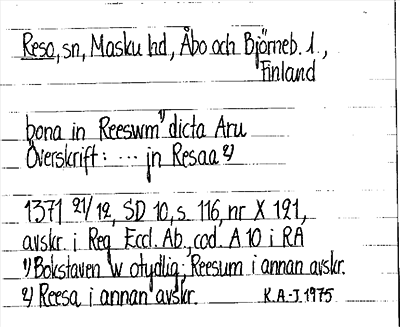 Reso, sn, Masku hd, Åbo och Björneb. l.,
Finland
bona in Reeswm¹⁾ dicta Aru
Överskrift: ... jn Resaa ²⁾
1371 21/12, SD 10, s. 116, nr X 191,
avskr. i Reg. Eccl. Ab., cod. A 10 i RA
¹⁾ Bokstaven w otydlig; Reesum i annan avskr.
²⁾ Reesa i annan avskr. K.A-J. 1975